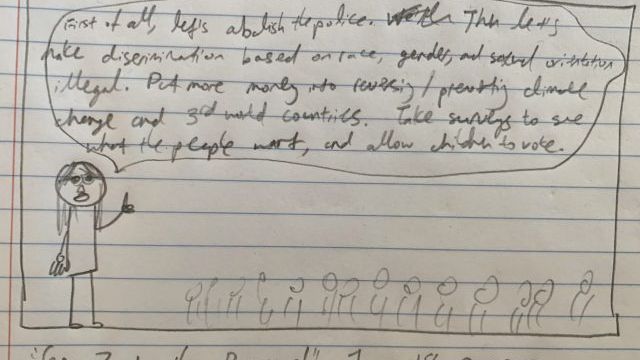 First of all, let's abolish the police. Then let's
make discrimination based on race, gender, and sexual orientation
illegal. Put more money into reversing / preventing climate
change and 3rd world countries. Take surveys to see
what the people want, and allow children to vote.